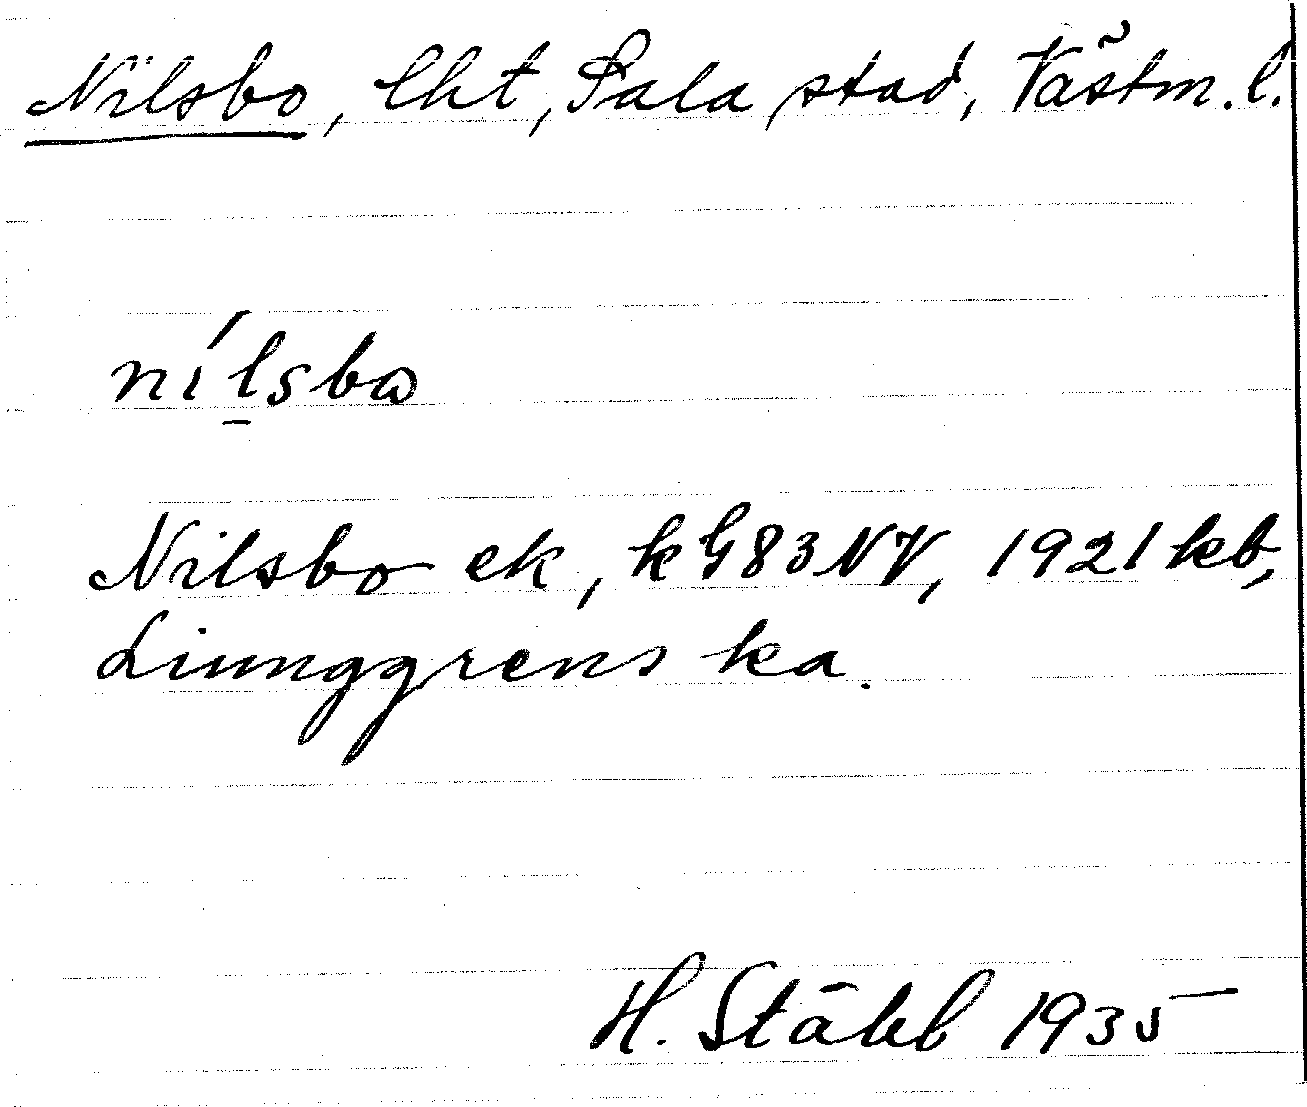 Nilsbo, lht, Sala stad, Västm. l.
nílsbo
Nilsbo ek, k G83NV, 1921 kb,
Liunggrens ka.
H. Ståhl 1935